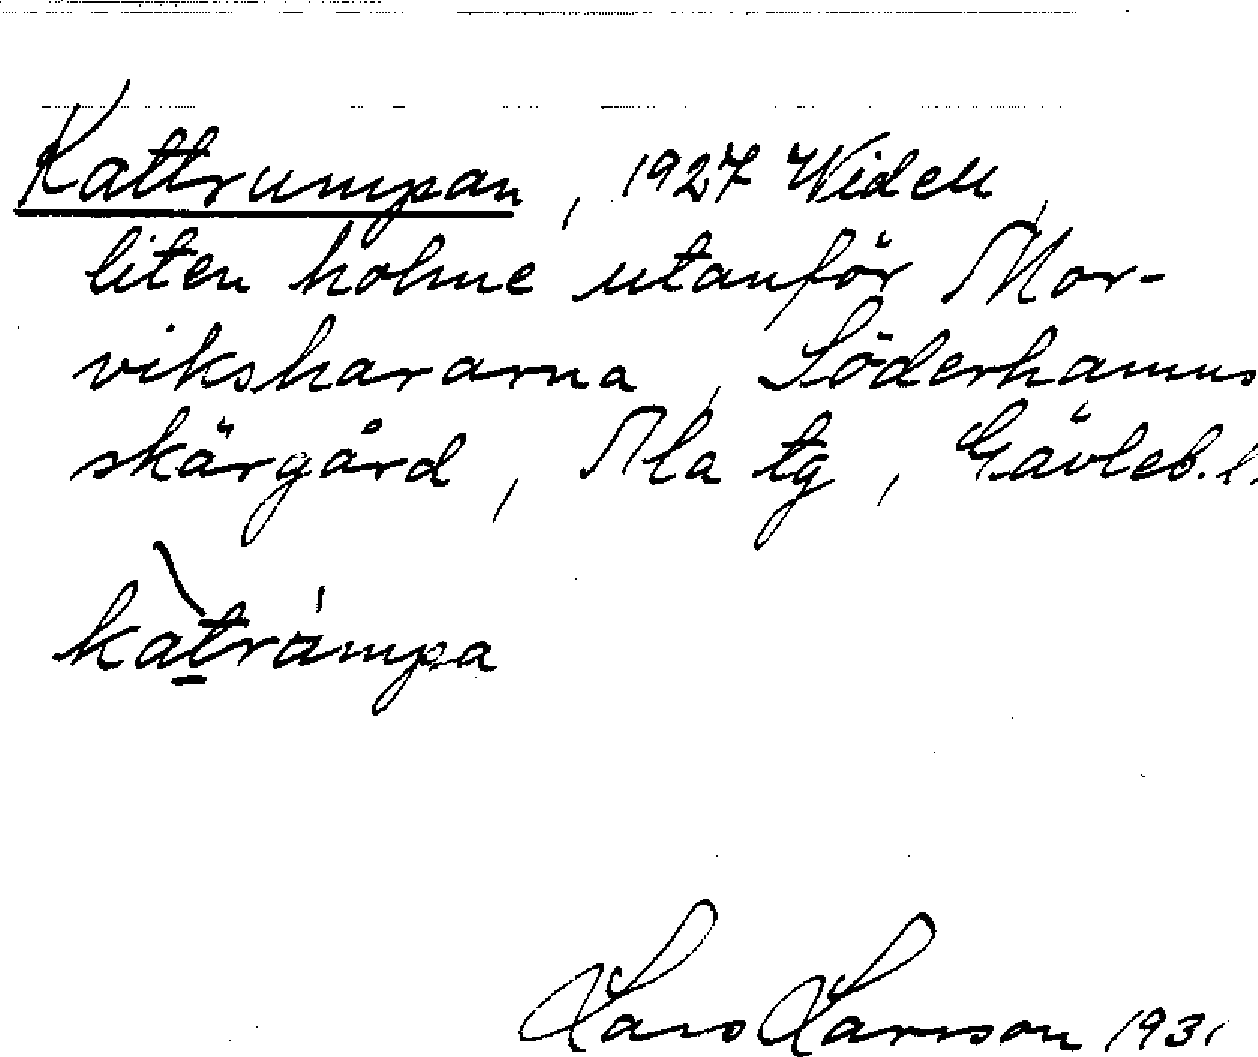 Kattrumpan, 1927 Widell,
liten holme utanför Mor-
vikshararna, Söderhamns
skärgård, Ma tg, Gävleb. l.
katrampa
Lars Larsson 1931